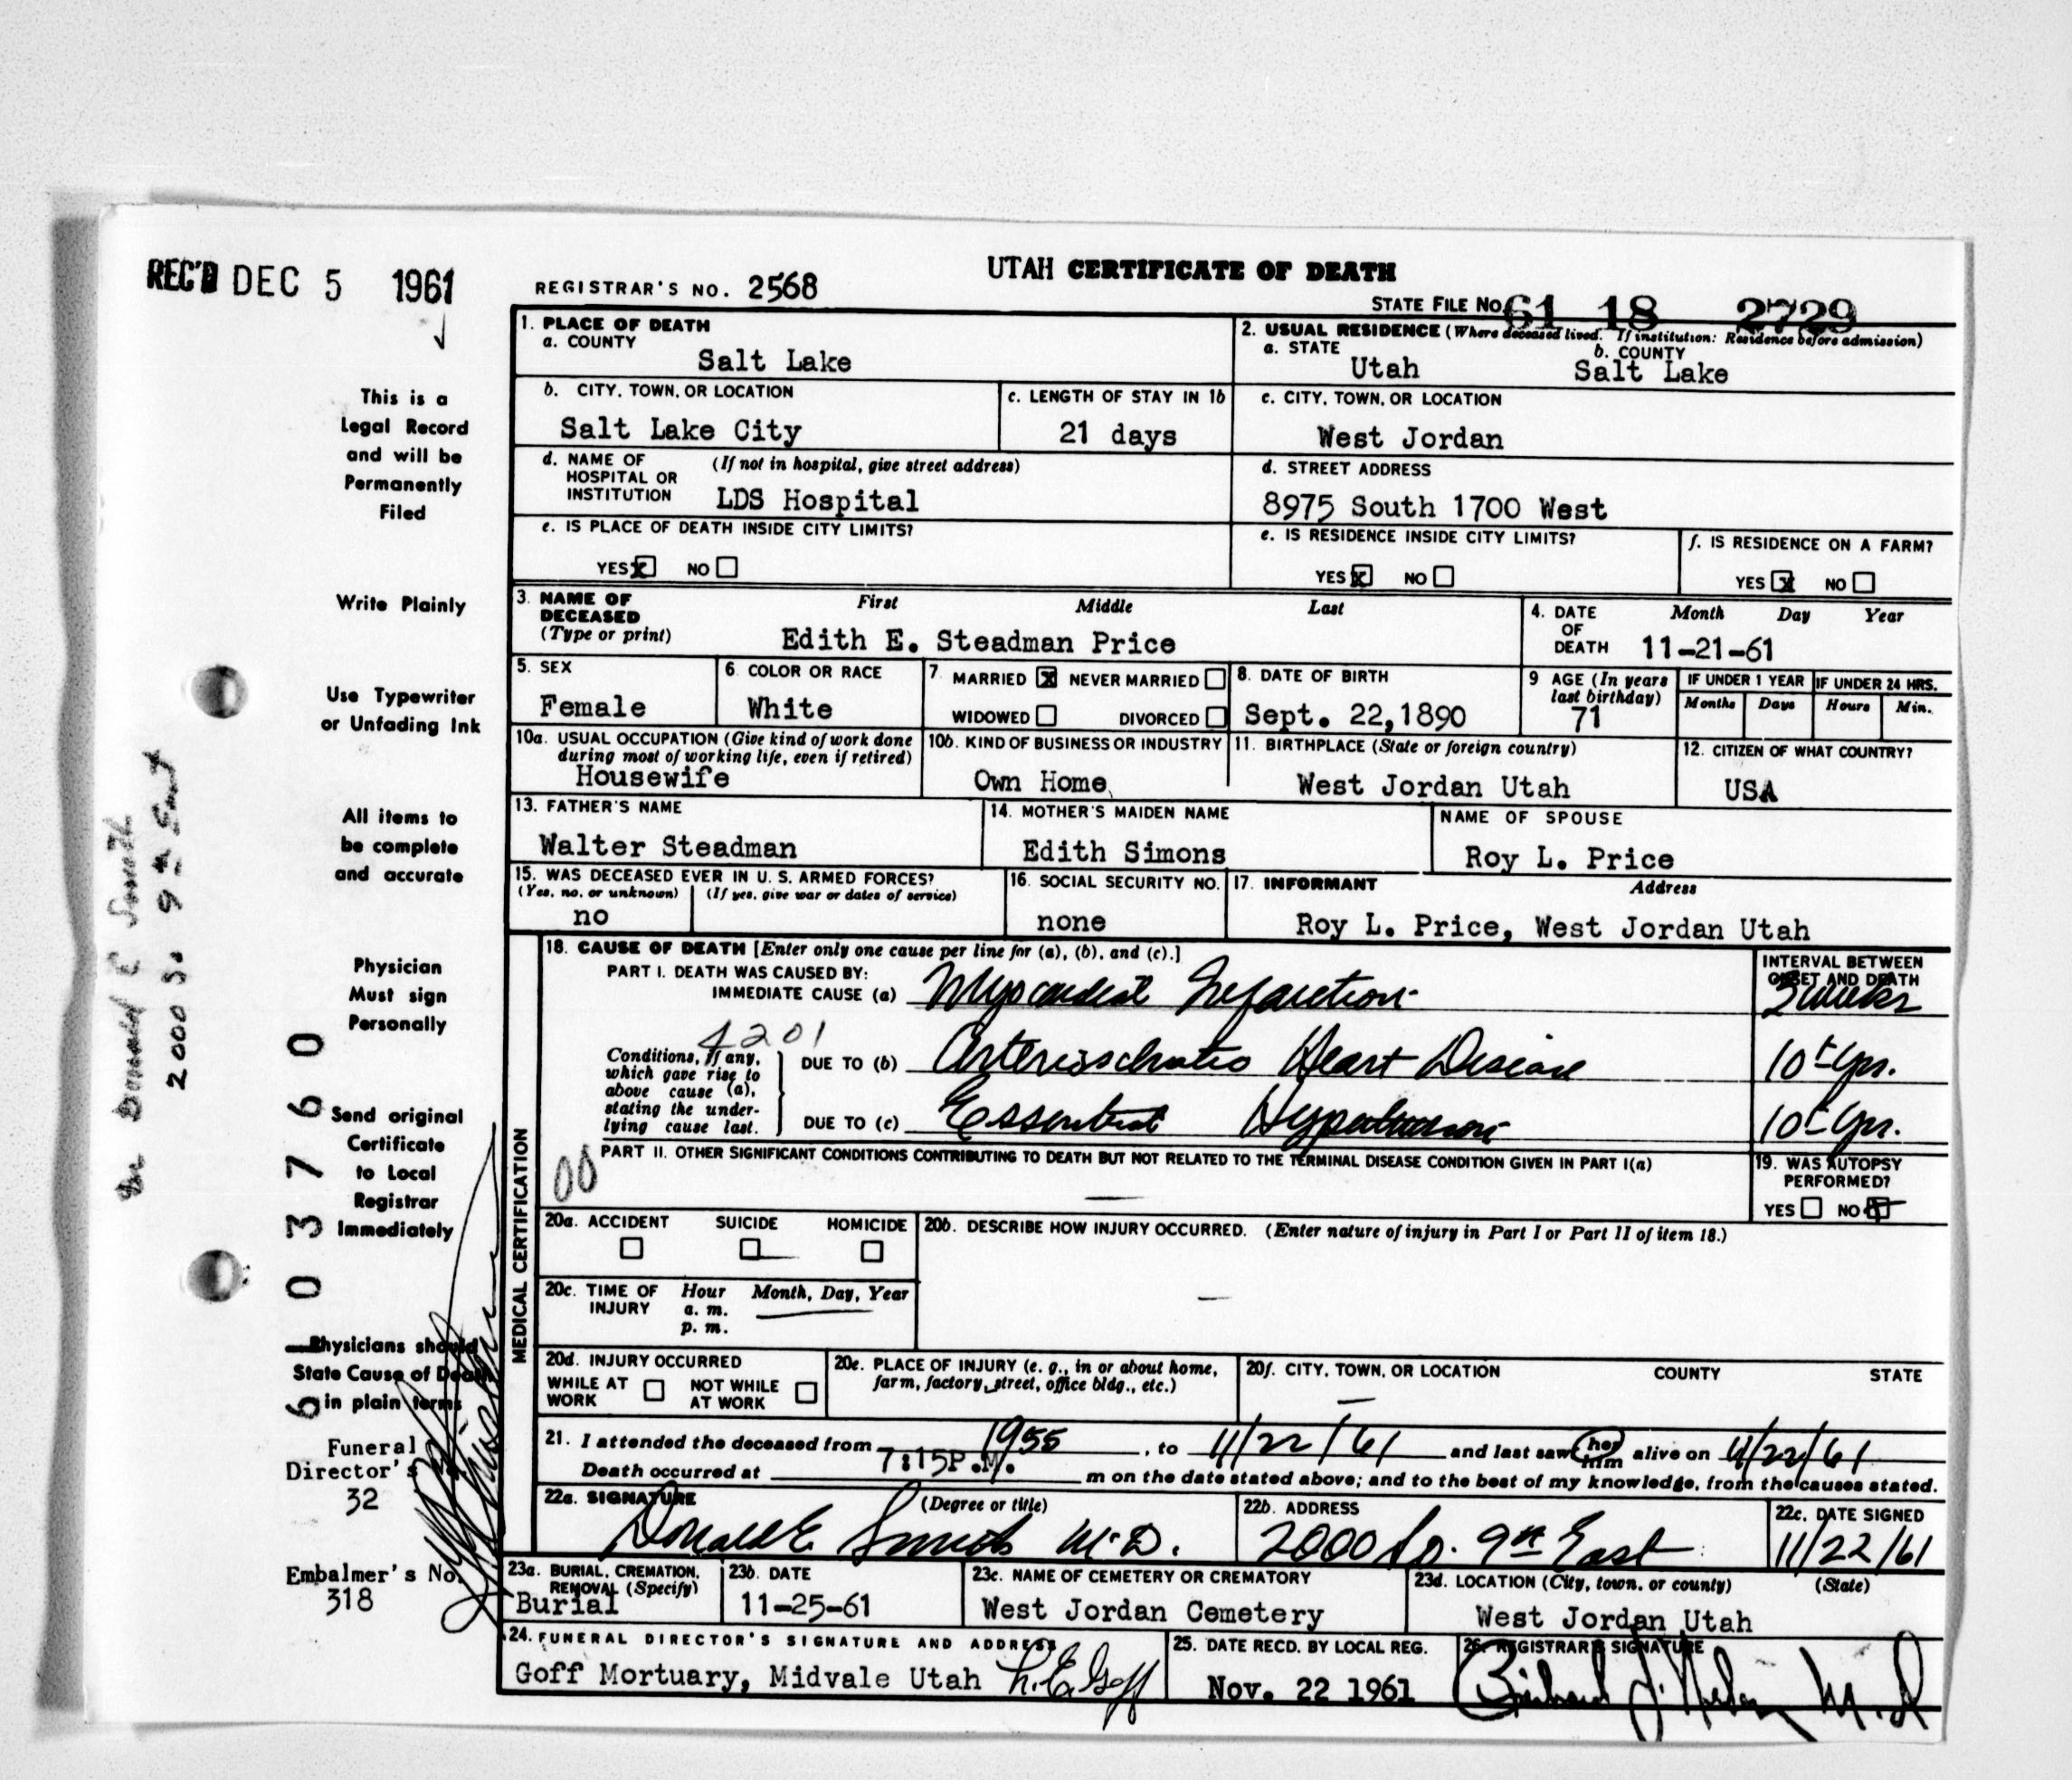 REC'D DEC 5 1961
UTAH CERTIFICATE OF DEATH
REGISTRAR'S NO. 2568
STATE FILE NO. 61 18 2729
1. PLACE OF DEATH
a. COUNTY
Salt Lake
2. USUAL RESIDENCE (Where deceased lived. If institution: Residence before admission)
a. STATE b. COUNTY
Utah Salt Lake
b. CITY, TOWN, OR LOCATION
Salt Lake City
c. LENGTH OF STAY IN 1b
21 days
c. CITY, TOWN, OR LOCATION
West Jordan
d. NAME OF HOSPITAL OR INSTITUTION (If not in hospital, give street address)
LDS Hospital
d. STREET ADDRESS
8975 South 1700 West
e. IS PLACE OF DEATH INSIDE CITY LIMITS?
YES x NO
e. IS RESIDENCE INSIDE CITY LIMITS?
YES x NO
f. IS RESIDENCE ON A FARM?
YES x NO
3. NAME OF DECEASED (Type or print) First Middle Last
Edith E. Steadman Price
4. DATE OF DEATH Month Day Year
11-21-61
5. SEX
Female
6. COLOR OR RACE
White
7. MARRIED x NEVER MARRIED
WIDOWED DIVORCED
8. DATE OF BIRTH
Sept. 22,1890
9. AGE (In years last birthday)
71
IF UNDER 1 YEAR IF UNDER 24 HRS.
Months Days Hours Min.
10a. USUAL OCCUPATION (Give kind of work done during most of working life, even if retired)
Housewife
10b. KIND OF BUSINESS OR INDUSTRY
Own Home
11. BIRTHPLACE (State or foreign country)
West Jordan Utah
12. CITIZEN OF WHAT COUNTRY?
USA
13. FATHER'S NAME
Walter Steadman
14. MOTHER'S MAIDEN NAME
Edith Simons
NAME OF SPOUSE
Roy L. Price
15. WAS DECEASED EVER IN U. S. ARMED FORCES?
(Yes, no, or unknown) (If yes, give war or dates of service)
no
16. SOCIAL SECURITY NO.
none
17. INFORMANT Address
Roy L. Price, West Jordan Utah
MEDICAL CERTIFICATION
18. CAUSE OF DEATH [Enter only one cause per line for (a), (b), and (c).]
INTERVAL BETWEEN ONSET AND DEATH
PART I. DEATH WAS CAUSED BY:
IMMEDIATE CAUSE (a) Myocardial Infarction 3 weeks
4201
Conditions, if any, which gave rise to above cause (a), stating the underlying cause last.
DUE TO (b) Arteriosclerotic Heart Disease 10 ± yrs.
DUE TO (c) Essential Hypertension 10 ± yrs.
00
PART II. OTHER SIGNIFICANT CONDITIONS CONTRIBUTING TO DEATH BUT NOT RELATED TO THE TERMINAL DISEASE CONDITION GIVEN IN PART I(a)
—
19. WAS AUTOPSY PERFORMED?
YES NO x
20a. ACCIDENT SUICIDE HOMICIDE
20b. DESCRIBE HOW INJURY OCCURRED. (Enter nature of injury in Part I or Part II of item 18.)
—
20c. TIME OF INJURY Hour Month, Day, Year
a. m.
p. m.
20d. INJURY OCCURRED
WHILE AT WORK NOT WHILE AT WORK
20e. PLACE OF INJURY (e. g., in or about home, farm, factory, street, office bldg., etc.)
20f. CITY, TOWN, OR LOCATION COUNTY STATE
—
21. I attended the deceased from 1955, to 11/22/61 and last saw her him alive on 11/22/61
Death occurred at 7:15P.M. m on the date stated above; and to the best of my knowledge, from the causes stated.
22a. SIGNATURE (Degree or title)
Donald E. Smith M.D.
22b. ADDRESS
2000 So. 9th East
22c. DATE SIGNED
11/22/61
23a. BURIAL, CREMATION, REMOVAL (Specify)
Burial
23b. DATE
11-25-61
23c. NAME OF CEMETERY OR CREMATORY
West Jordan Cemetery
23d. LOCATION (City, town, or county) (State)
West Jordan Utah
24. FUNERAL DIRECTOR'S SIGNATURE AND ADDRESS
Goff Mortuary, Midvale Utah L.E. Goff
25. DATE RECD. BY LOCAL REG.
Nov. 22 1961
26. REGISTRAR'S SIGNATURE
This is a
Legal Record
and will be
Permanently
Filed
Write Plainly
Use Typewriter
or Unfading Ink
All items to
be complete
and accurate
Physician
Must sign
Personally
Send original
Certificate
to Local
Registrar
Immediately
Physicians should
State Cause of Death
in plain terms
Funeral
Director's No.
32
Embalmer's No.
318
Dr Donald E Smith
2000 So 9th East
61 03760